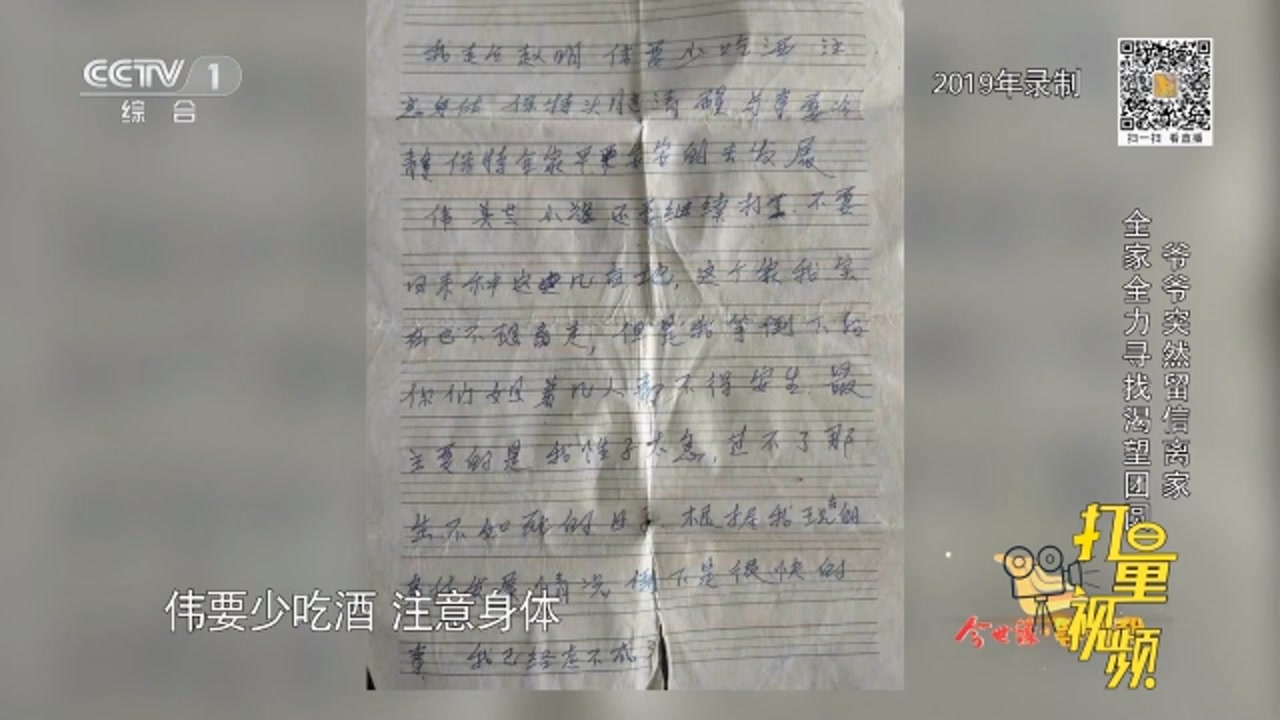 CCTV 1
综合
2019年录制
扫一扫 看直播
爷爷突然留信离家
全家全力寻找渴望团圆
我走后赵明 伟要少吃酒 注
意身体 保持头脑清醒 办事要冷
静 保持全家平安的去发展
伟 美芸 小 还要继续打工.不要
回来种这几亩地,这个家我实
在也不想离走,但是我等倒下后
你们姐着几人都不得安生.最
主要的是我性子太急,过不了那
生不如死的日子.根据我现在的
身体发展情况,倒下是很快的
事 我已经走不成了
伟要少吃酒 注意身体
打量视频
今世缘